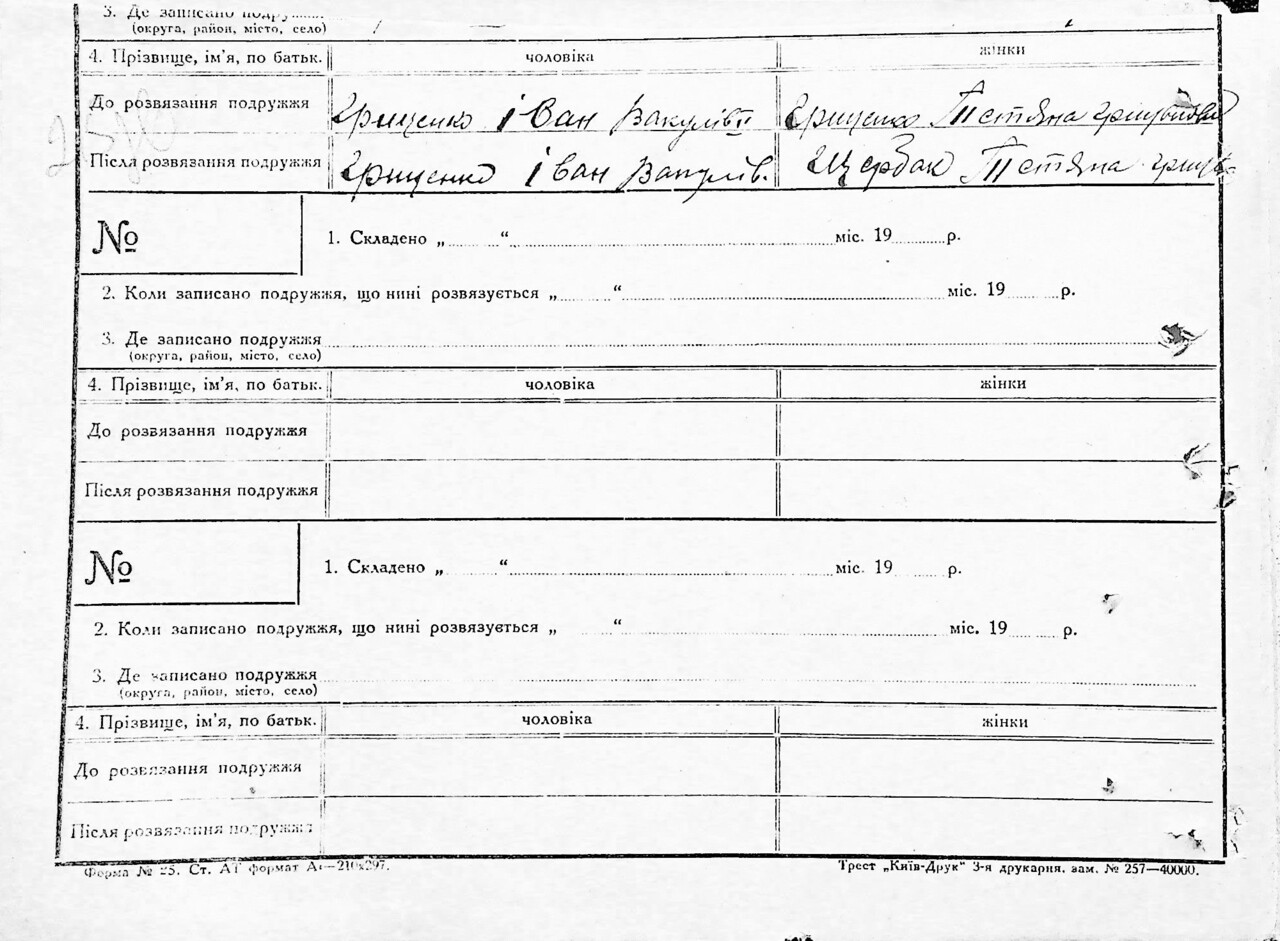 3. Де записано подружжя
(округа, район, місто, село)
4. Прізвище, ім’я, по батьк. чоловіка жінки
До розвязання подружжя Грищенко Іван Вакулів Грищенко Тетяна
Після розвязання подружжя Грищенко Іван Вакулів. Щербак Тетяна
№ 1. Складено „ “ міс. 19 р.
2. Коли записано подружжя, що нині розвязується „ “ міс. 19 р.
3. Де записано подружжя
(округа, район, місто, село)
4. Прізвище, ім’я, по батьк. чоловіка жінки
До розвязання подружжя
Після розвязання подружжя
№ 1. Складено „ “ міс. 19 р.
2. Коли записано подружжя, що нині розвязується „ “ міс. 19 р.
3. Де записано подружжя
(округа, район, місто, село)
4. Прізвище, ім’я, по батьк. чоловіка жінки
До розвязання подружжя
Після розвязання подружжя
Форма № 25. Ст. АТ формат А₄—210х297. Трест „Київ-Друк“ 3-я друкарня. зам. № 257—40000.